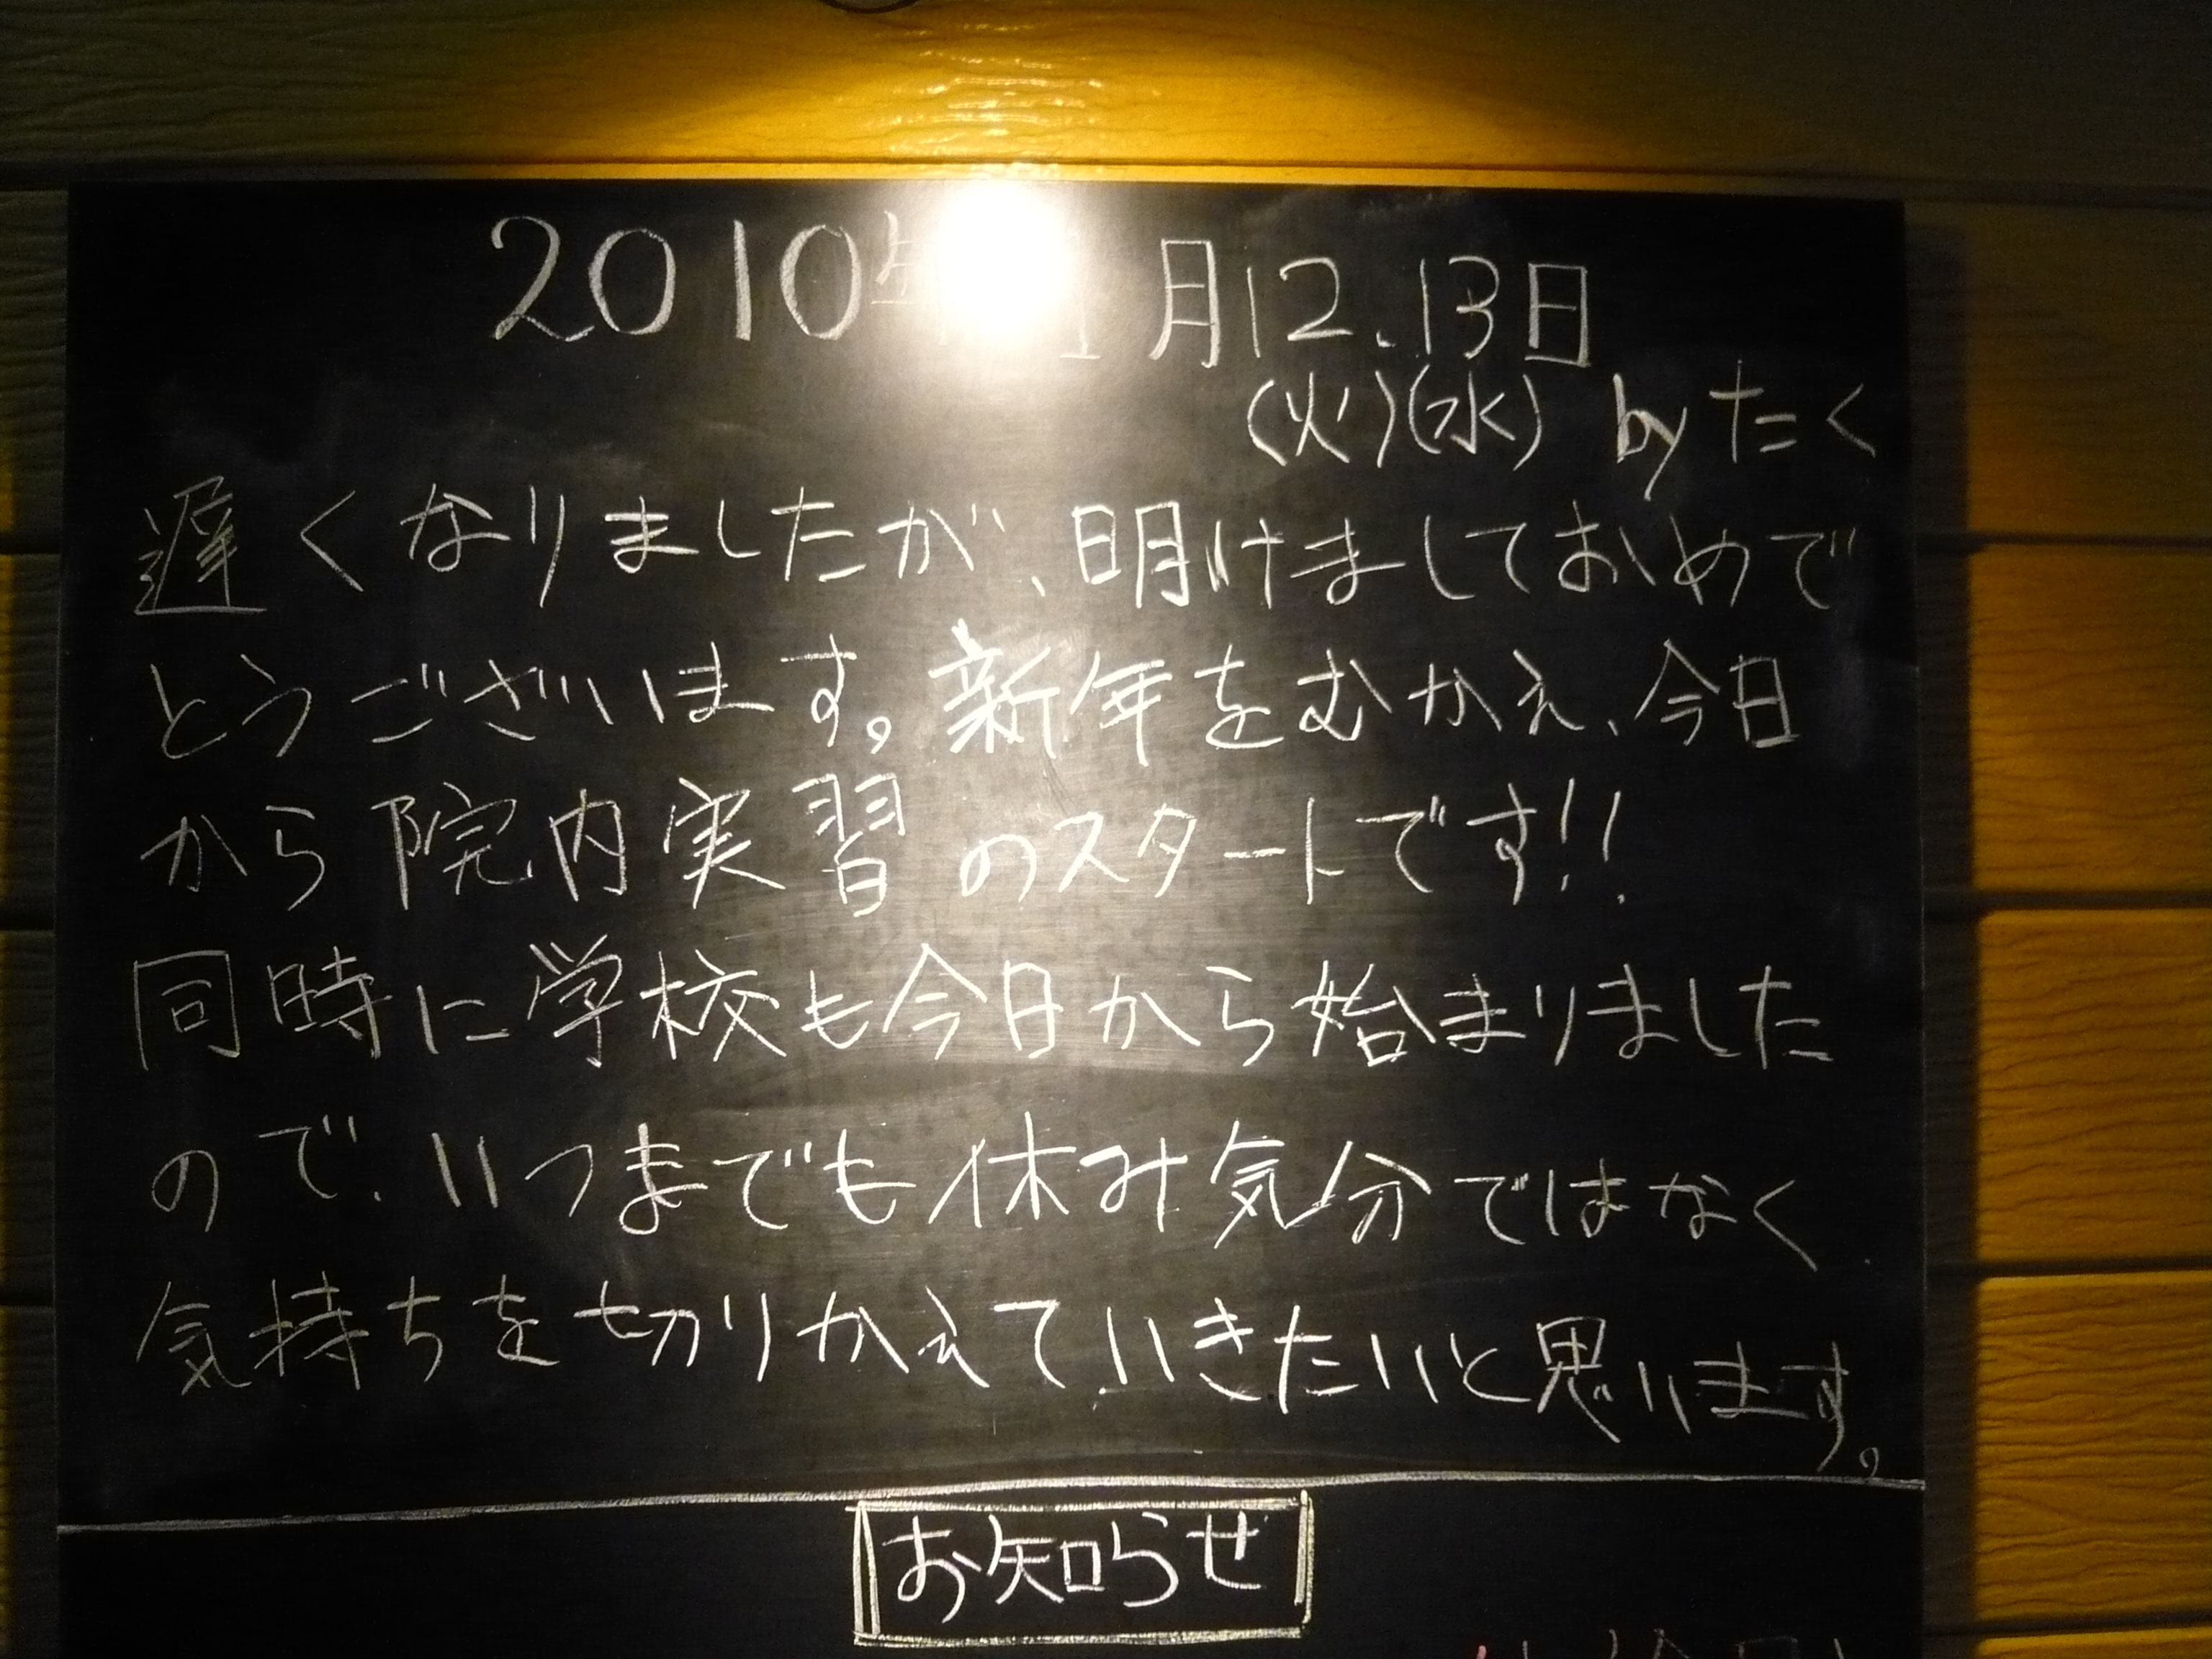 2010年1月12.13日
(火)(水) by たく
遅くなりましたが、明けましておめで
とうございます。新年をむかえ、今日
から院内実習のスタートです!!
同時に学校も今日から始まりました
ので、いつまでも休み気分ではなく
気持ちを切りかえていきたいと思います。
お知らせ